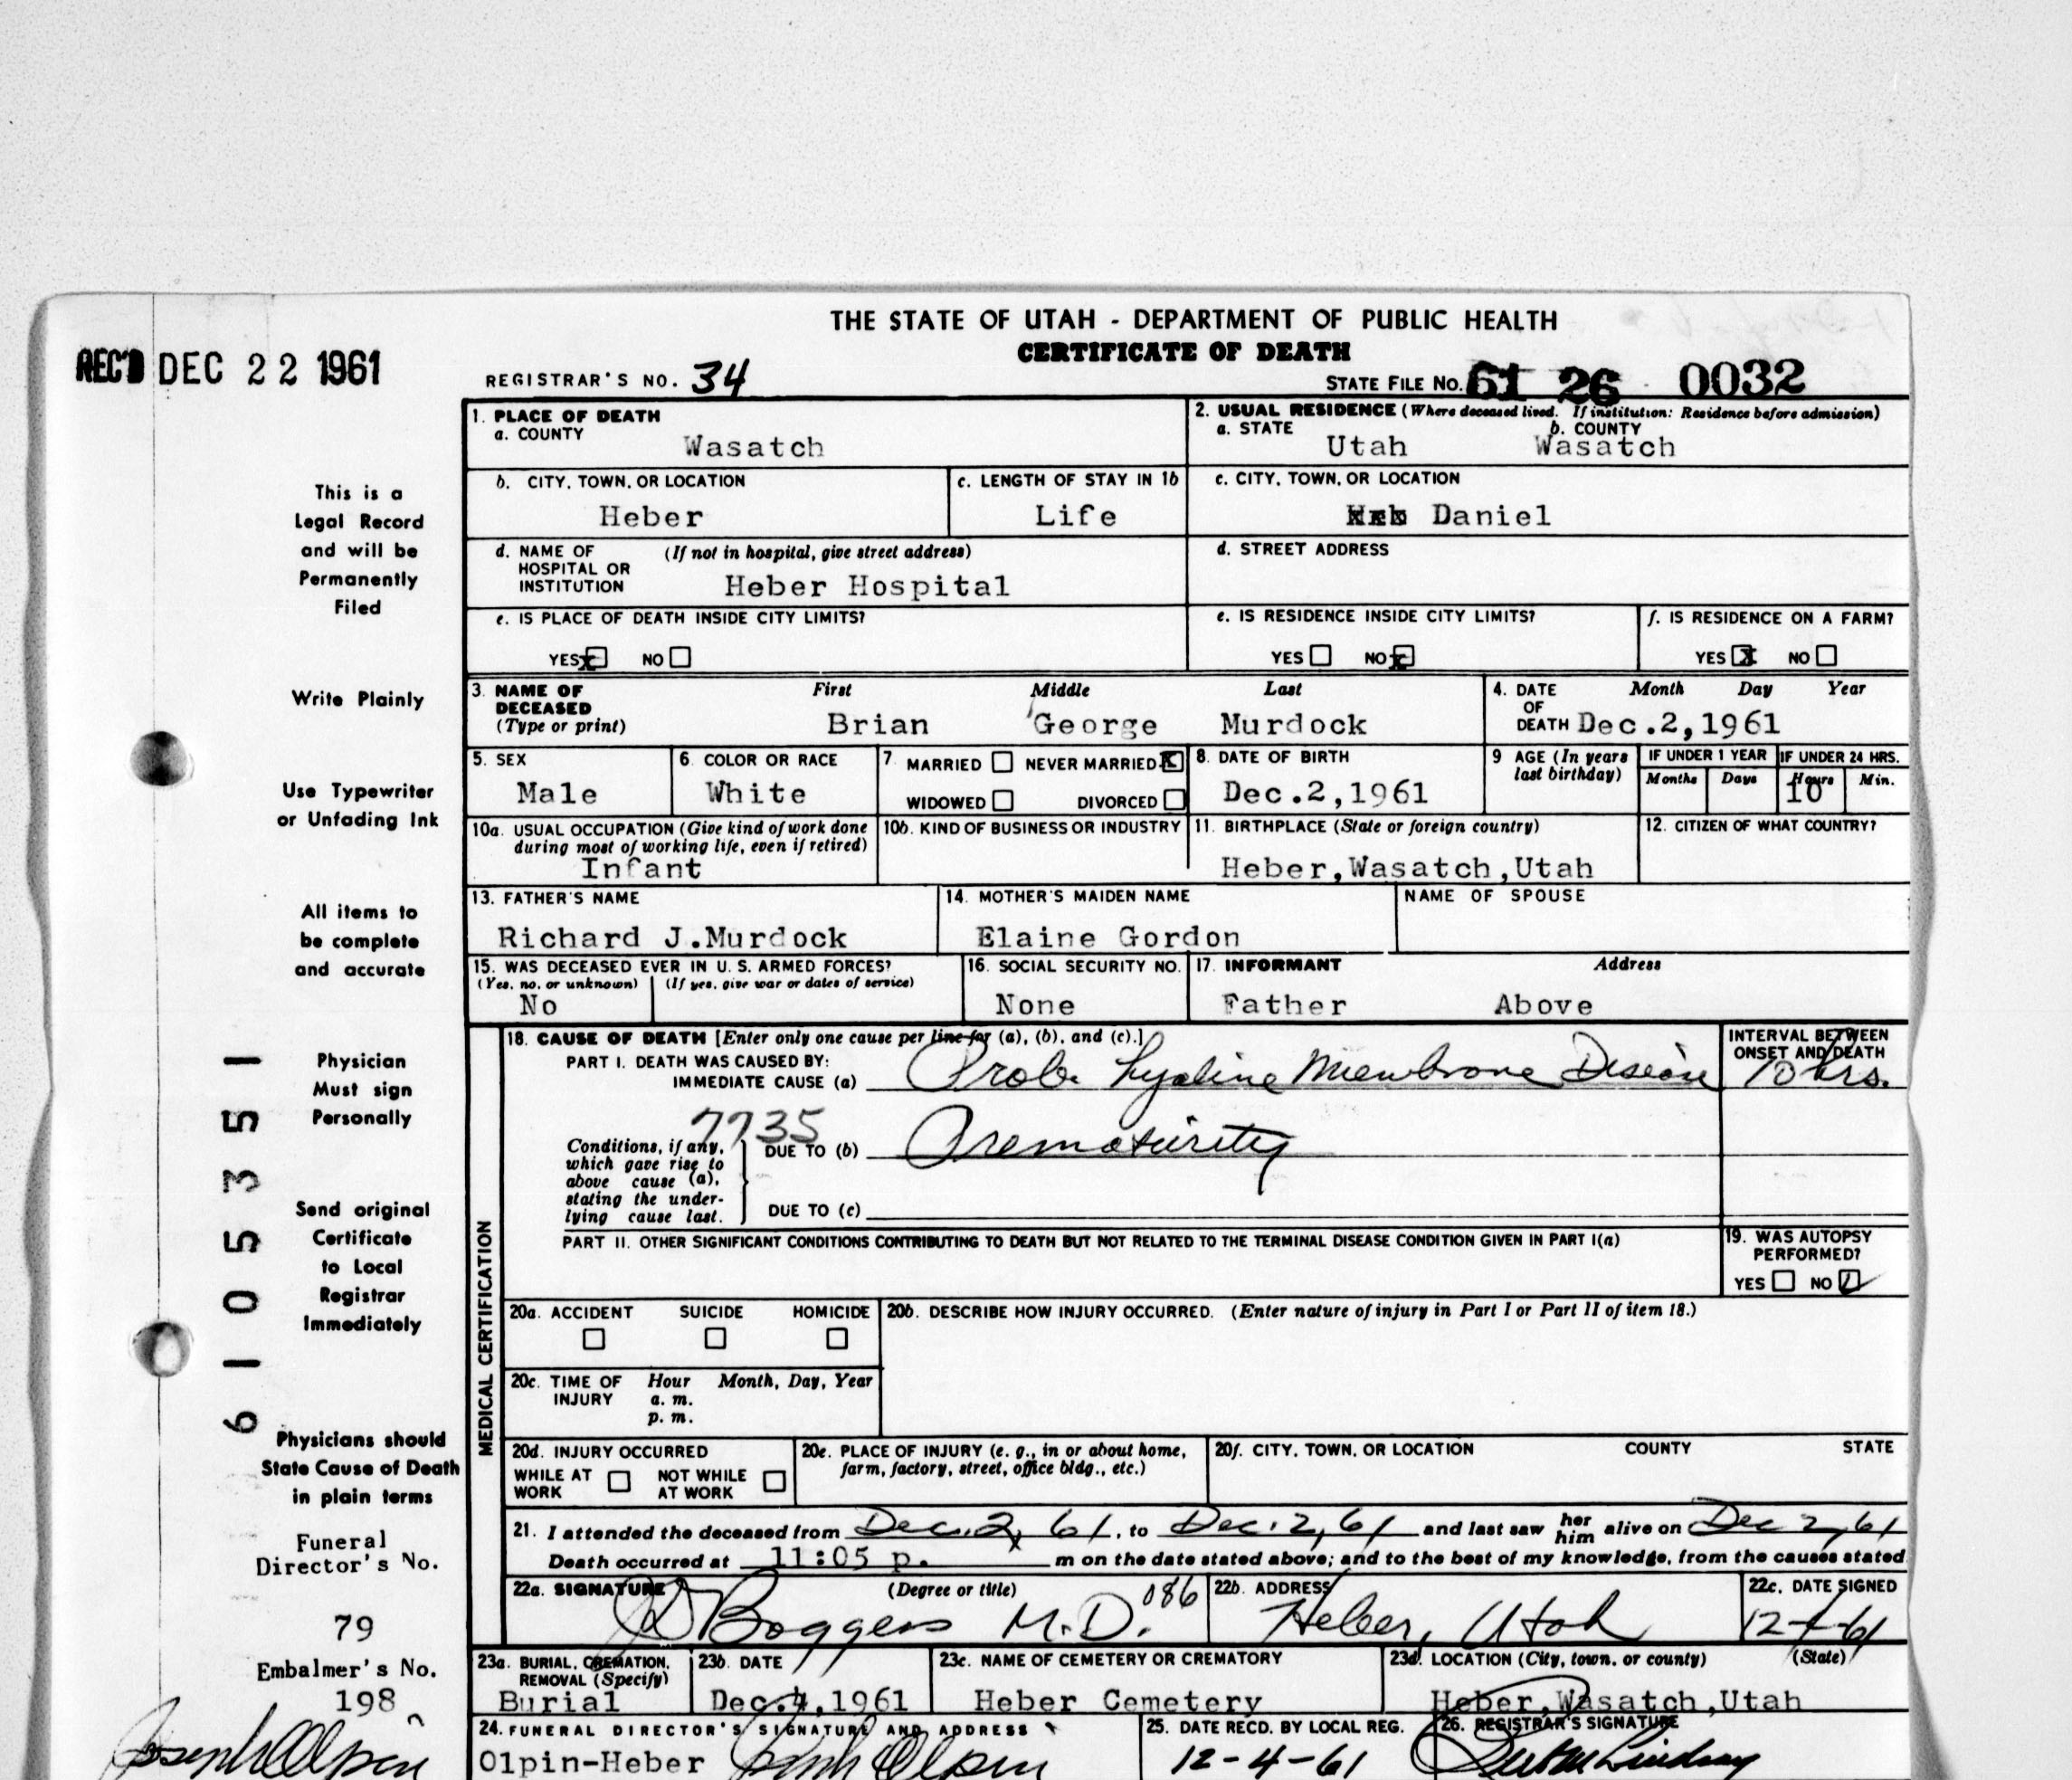 THE STATE OF UTAH - DEPARTMENT OF PUBLIC HEALTH
CERTIFICATE OF DEATH
REC'D DEC 22 1961
REGISTRAR'S NO. 34
STATE FILE No. 61 26 0032
1. PLACE OF DEATH
a. COUNTY
Wasatch
2. USUAL RESIDENCE (Where deceased lived. If institution: Residence before admission)
a. STATE b. COUNTY
Utah Wasatch
b. CITY, TOWN, OR LOCATION
Heber
c. LENGTH OF STAY IN 1b
Life
c. CITY, TOWN, OR LOCATION
Daniel
d. NAME OF (If not in hospital, give street address)
HOSPITAL OR
INSTITUTION
Heber Hospital
d. STREET ADDRESS
e. IS PLACE OF DEATH INSIDE CITY LIMITS?
YES x NO
e. IS RESIDENCE INSIDE CITY LIMITS?
YES NO x
f. IS RESIDENCE ON A FARM?
YES X NO
3. NAME OF DECEASED
(Type or print)
First Middle Last
Brian George Murdock
4. DATE OF DEATH
Month Day Year
Dec.2,1961
5. SEX
Male
6. COLOR OR RACE
White
7 MARRIED NEVER MARRIED x
WIDOWED DIVORCED
8. DATE OF BIRTH
Dec.2,1961
9 AGE (In years
last birthday)
IF UNDER 1 YEAR
Months Days
IF UNDER 24 HRS.
Hours Min.
10
10a. USUAL OCCUPATION (Give kind of work done
during most of working life, even if retired)
Infant
10b. KIND OF BUSINESS OR INDUSTRY
11. BIRTHPLACE (State or foreign country)
Heber,Wasatch,Utah
12. CITIZEN OF WHAT COUNTRY?
13. FATHER'S NAME
Richard J.Murdock
14. MOTHER'S MAIDEN NAME
Elaine Gordon
NAME OF SPOUSE
15. WAS DECEASED EVER IN U. S. ARMED FORCES?
(Yes, no, or unknown) (If yes, give war or dates of service)
No
16. SOCIAL SECURITY NO.
None
17. INFORMANT Address
Father Above
MEDICAL CERTIFICATION
18. CAUSE OF DEATH [Enter only one cause per line for (a), (b), and (c).]
PART I. DEATH WAS CAUSED BY:
IMMEDIATE CAUSE (a) Prob. Hyaline Membrane Disease
INTERVAL BETWEEN
ONSET AND DEATH
10 hrs.
7735
Conditions, if any,
which gave rise to
above cause (a),
stating the under-
lying cause last.
DUE TO (b) Prematurity
DUE TO (c)
PART II. OTHER SIGNIFICANT CONDITIONS CONTRIBUTING TO DEATH BUT NOT RELATED TO THE TERMINAL DISEASE CONDITION GIVEN IN PART I(a)
19. WAS AUTOPSY
PERFORMED?
YES NO
20a. ACCIDENT SUICIDE HOMICIDE
20b. DESCRIBE HOW INJURY OCCURRED. (Enter nature of injury in Part I or Part II of item 18.)
20c. TIME OF INJURY
Hour Month, Day, Year
a. m.
p. m.
20d. INJURY OCCURRED
WHILE AT WORK NOT WHILE AT WORK
20e. PLACE OF INJURY (e. g., in or about home,
farm, factory, street, office bldg., etc.)
20f. CITY, TOWN, OR LOCATION COUNTY STATE
21. I attended the deceased from Dec. 2, 61, to Dec. 2, 61 and last saw her him alive on Dec 2, 61
Death occurred at 11:05 p. m on the date stated above; and to the best of my knowledge, from the causes stated
22a. SIGNATURE (Degree or title)
Boggess M.D. 086
22b. ADDRESS
Heber, Utah
22c. DATE SIGNED
23a. BURIAL, CREMATION,
REMOVAL (Specify)
Burial
23b. DATE
Dec.4,1961
23c. NAME OF CEMETERY OR CREMATORY
Heber Cemetery
23d. LOCATION (City, town, or county) (State)
Heber,Wasatch,Utah
24. FUNERAL DIRECTOR'S SIGNATURE AND ADDRESS
Olpin-Heber Joseph Olpin
25. DATE RECD. BY LOCAL REG.
12-4-61
26. REGISTRAR'S SIGNATURE
Lindsay
This is a
Legal Record
and will be
Permanently
Filed
Write Plainly
Use Typewriter
or Unfading Ink
All items to
be complete
and accurate
Physician
Must sign
Personally
Send original
Certificate
to Local
Registrar
Immediately
Physicians should
State Cause of Death
in plain terms
6105351
Funeral
Director's No.
79
Embalmer's No.
198
Joseph Olpin